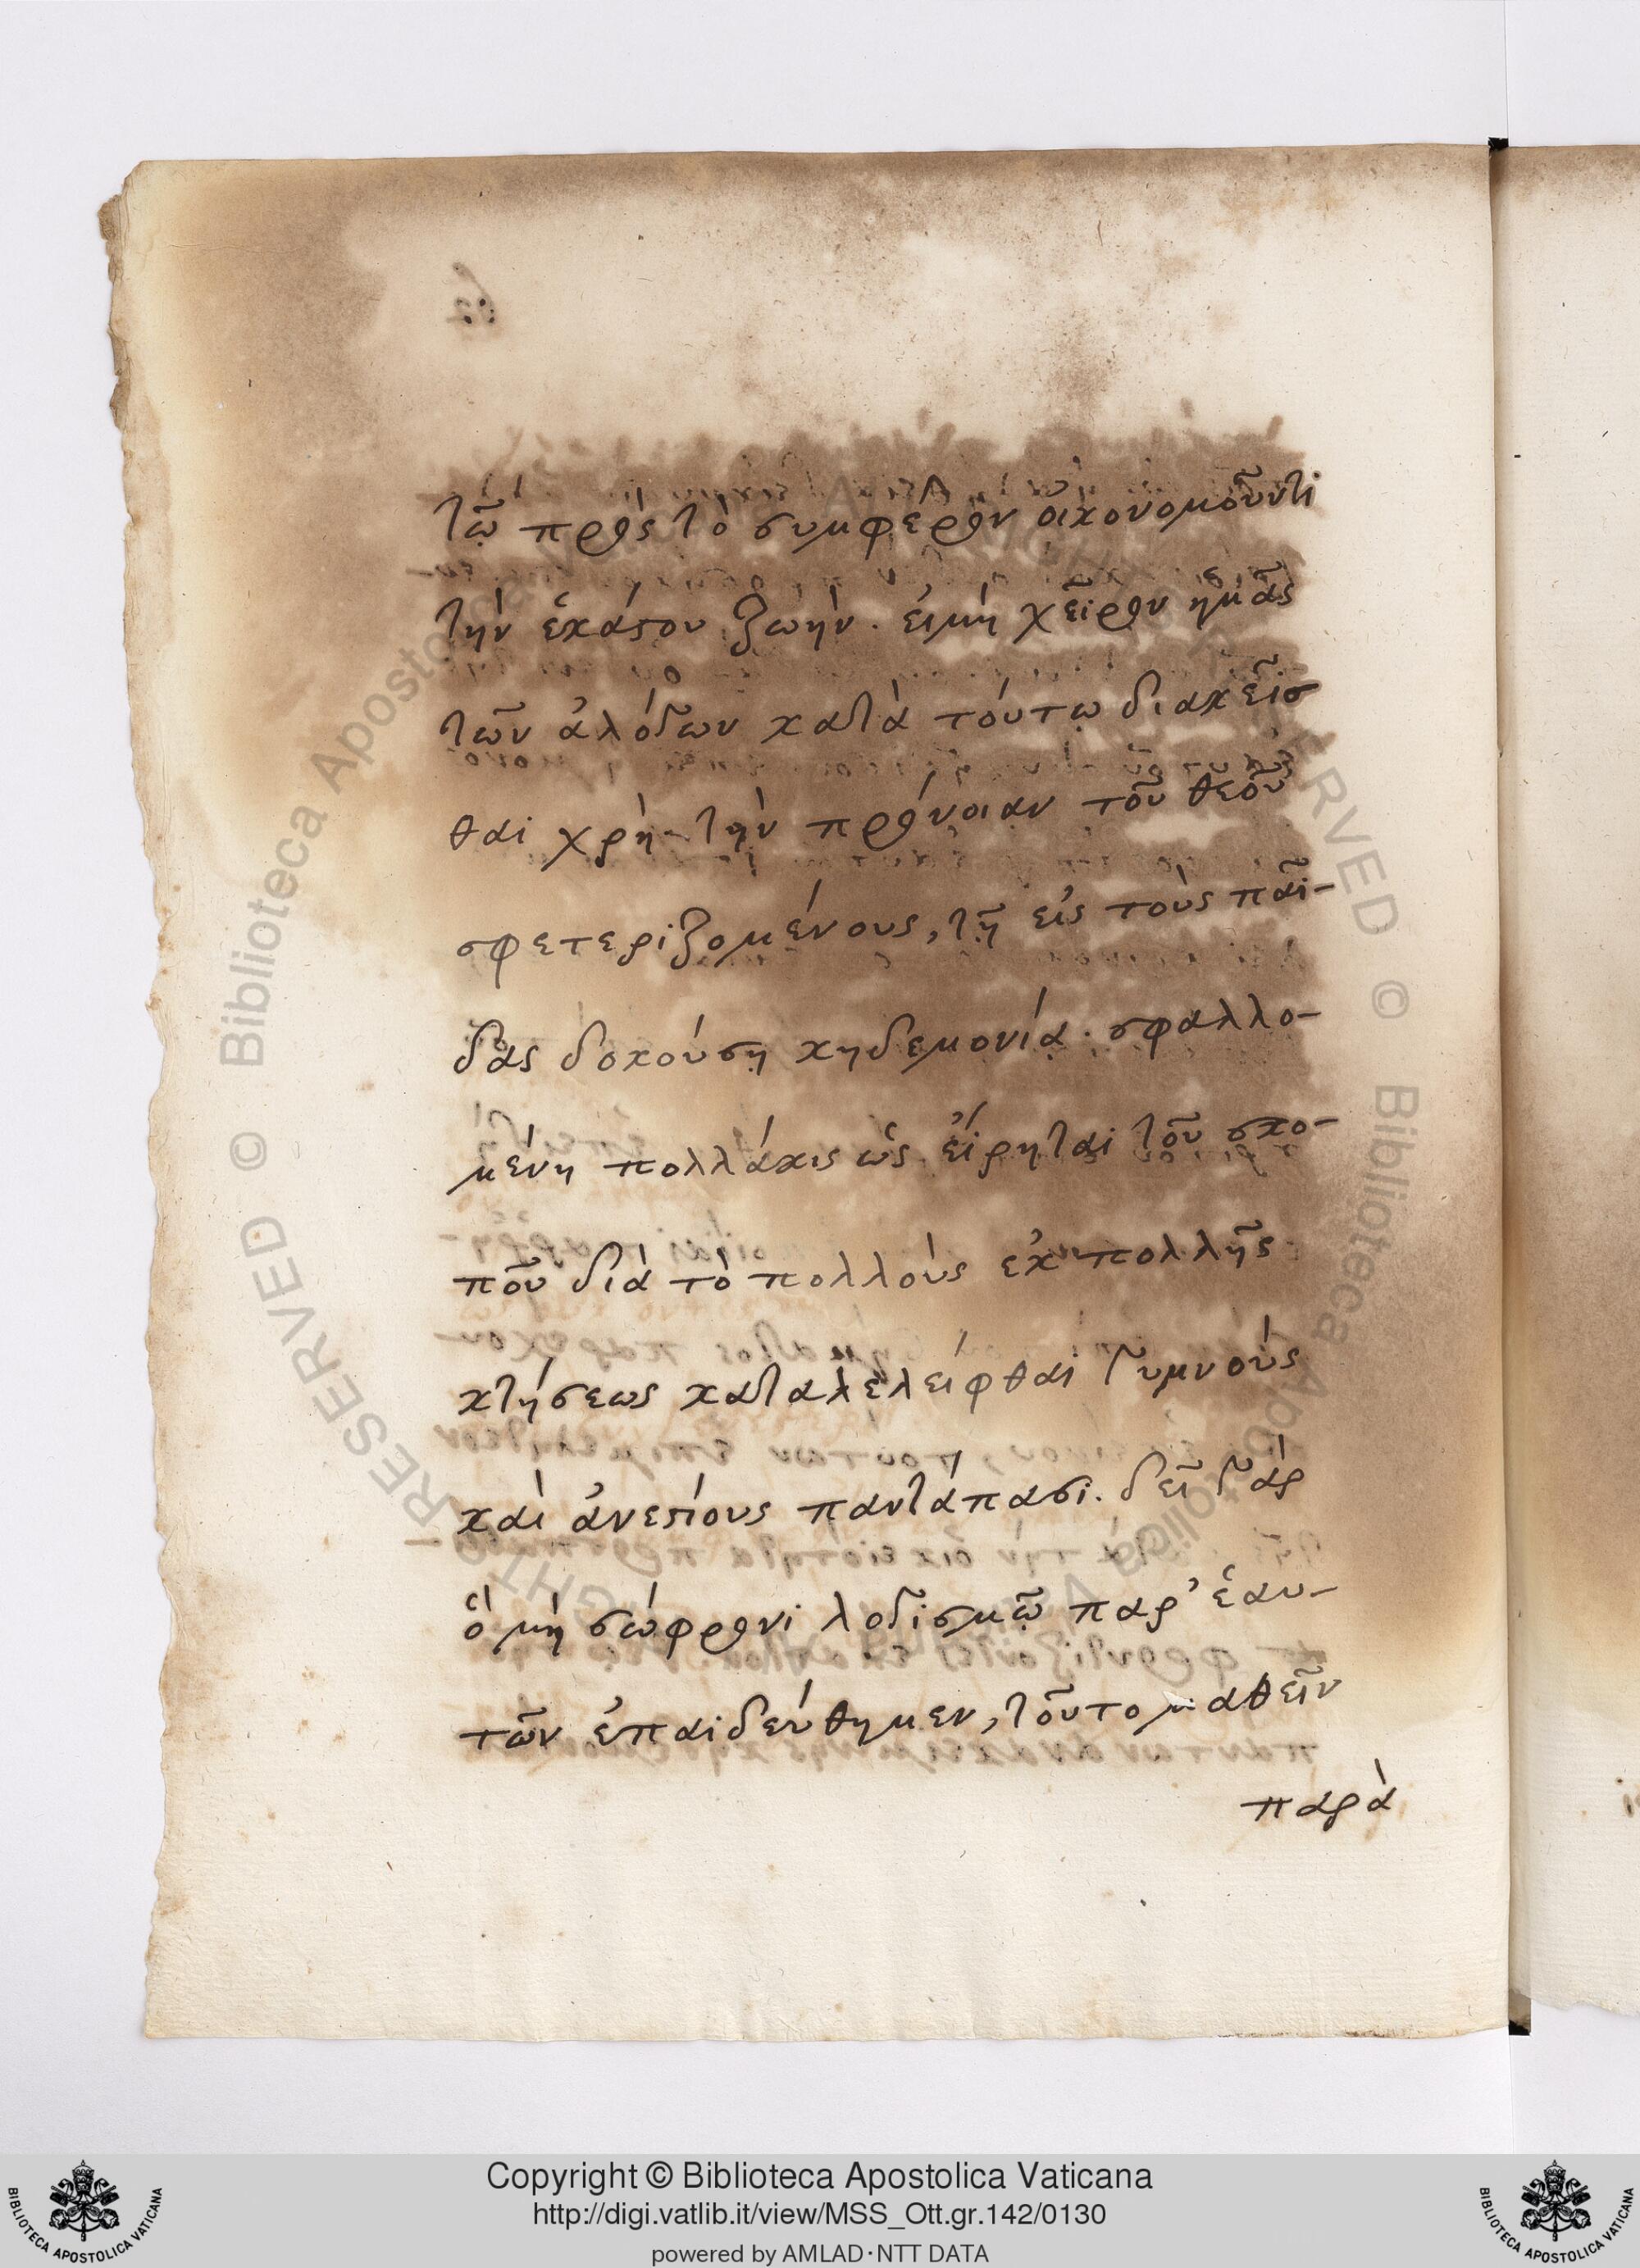 τῷ πρὸς τὸ συμφέρον οἰκονομοῦντι
τὴν ἑκάστου ζωήν. εἰμὴ χεῖρον ἡμᾶς
τῶν ἀλόγων κατὰ τούτῳ διακεῖσ
θαι χρὴ τὴν πρόνοιαν τοῦ θεοῦ
σφετεριζομένους, τῇ εἰς τοὺς παῖ-
δας δοκούσῃ κηδεμονίᾳ. σφαλλο-
μένη πολλάκις ὡς εἴρηται τοῦ σκο-
ποῦ διὰ τὸ πολλοὺς ἐκ πολλῆς
κτήσεως καταλελείφθαι γυμνοὺς
καὶ ἀνεστίους παντάπασι. δεῖ γὰρ
ὃ μὴ σώφρονι λογισμῷ παρ' ἑαυ-
τῶν ἐπαιδεύθημεν, τοῦτο μαθεῖν
παρὰ
Copyright © Biblioteca Apostolica Vaticana
http://digi.vatlib.it/view/MSS_Ott.gr.142/0130
powered by AMLAD·NTT DATA